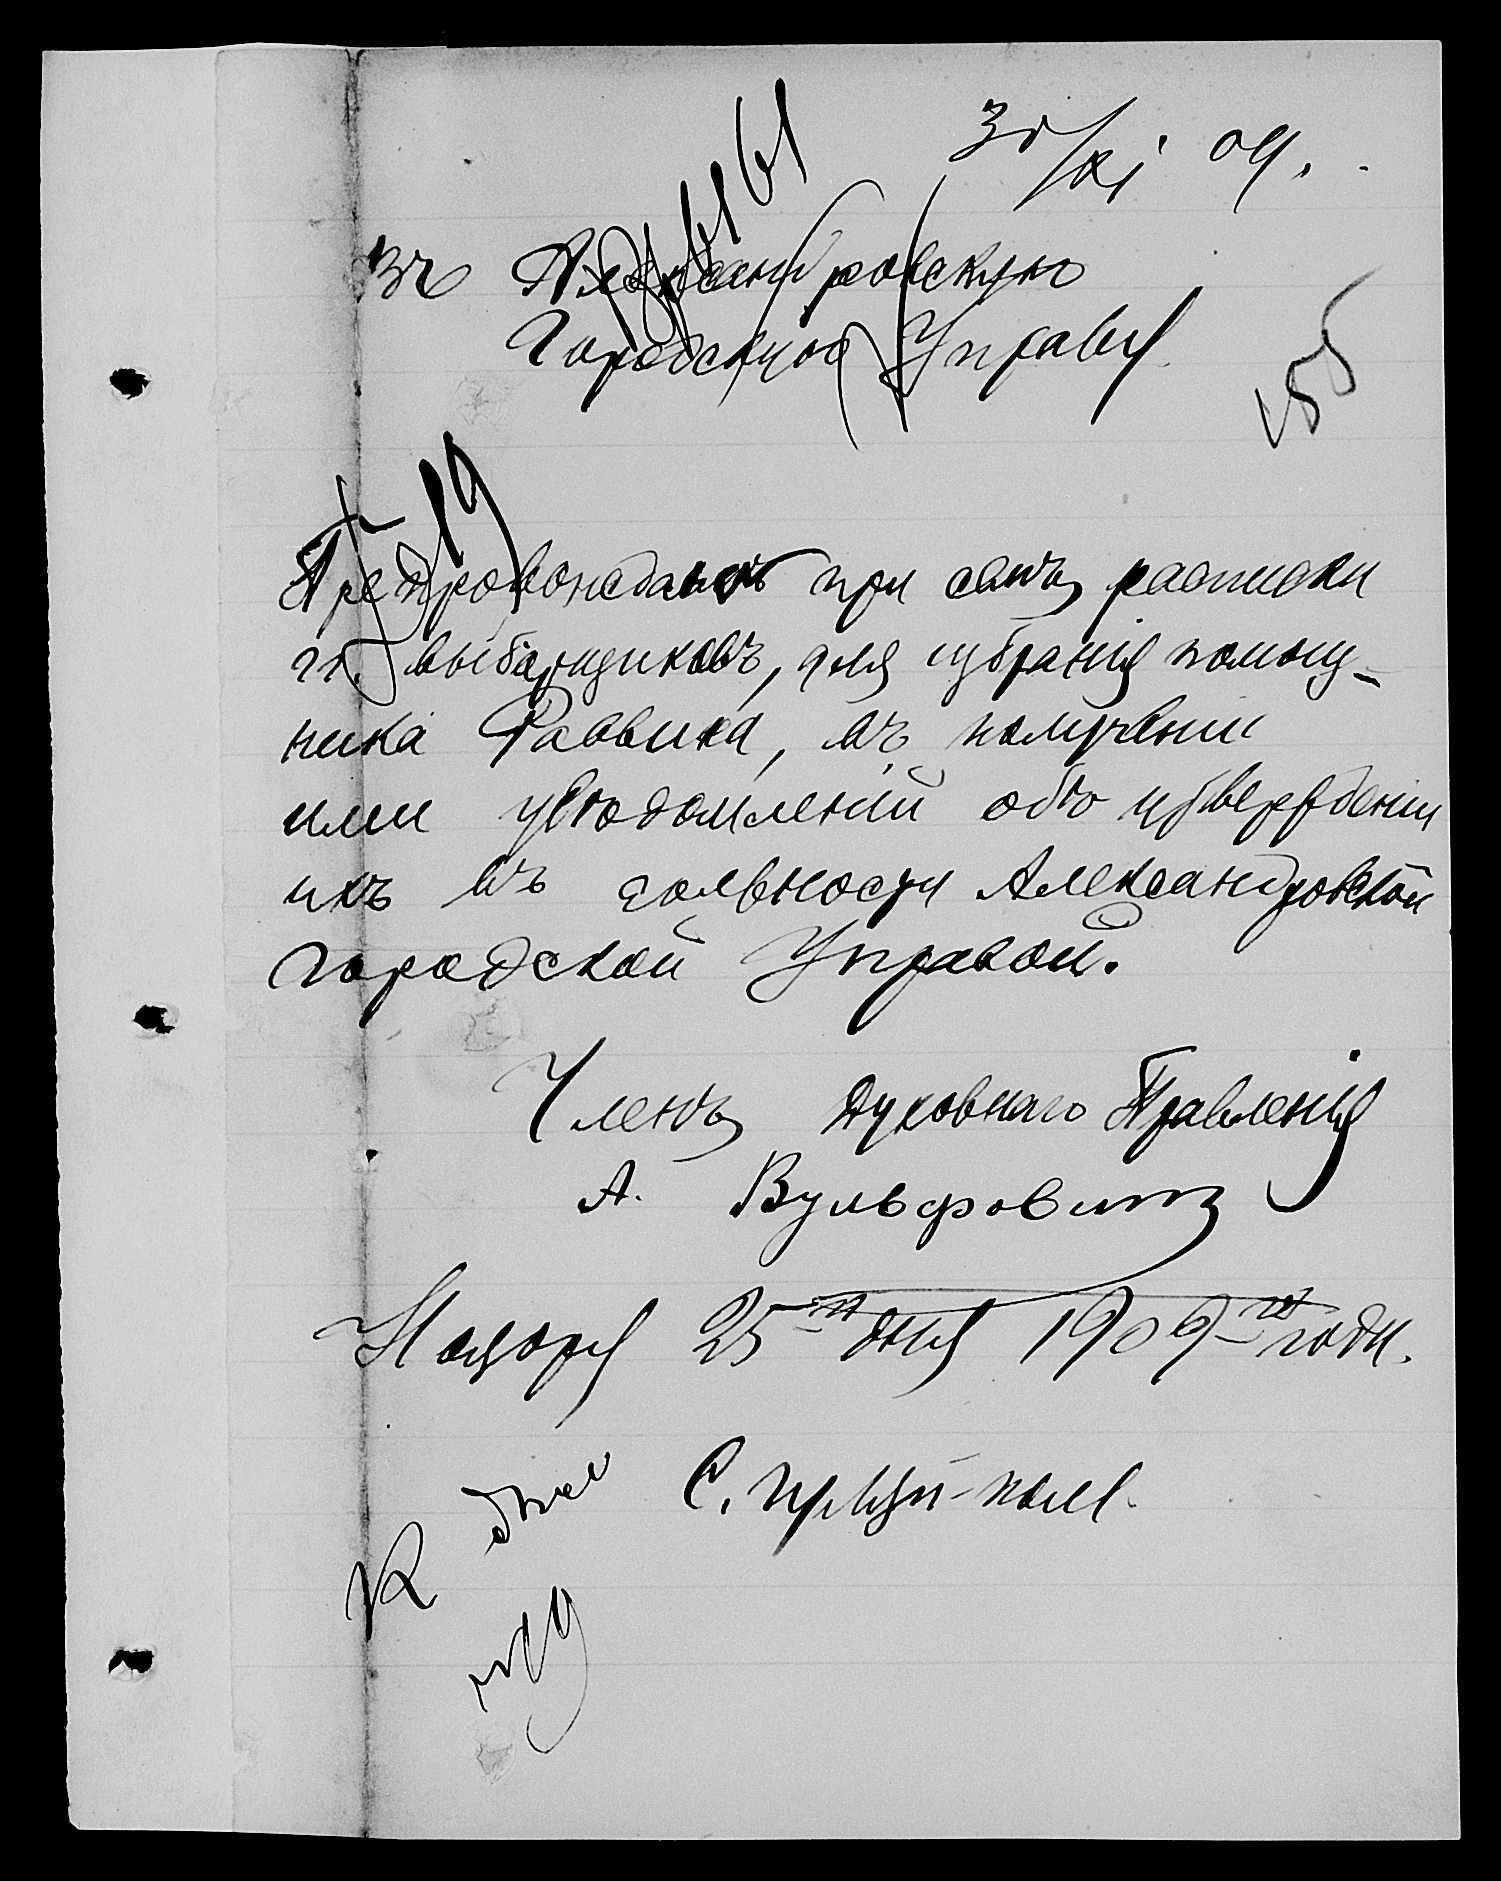 30/XI 09.
Въ Александровскую
Городскую Управу
155
19
Препровождаю при семъ расписки
гг. выборщиковъ, для избранія помощ-
ника Раввина, въ полученіи
ими уведомленій объ утвержденіи
ихъ въ должности Александровской
Городской Управой.
Членъ Духовнаго Правленія
А. Вульфовичъ
Ноября 25-го дня 1909-го года.
К делу